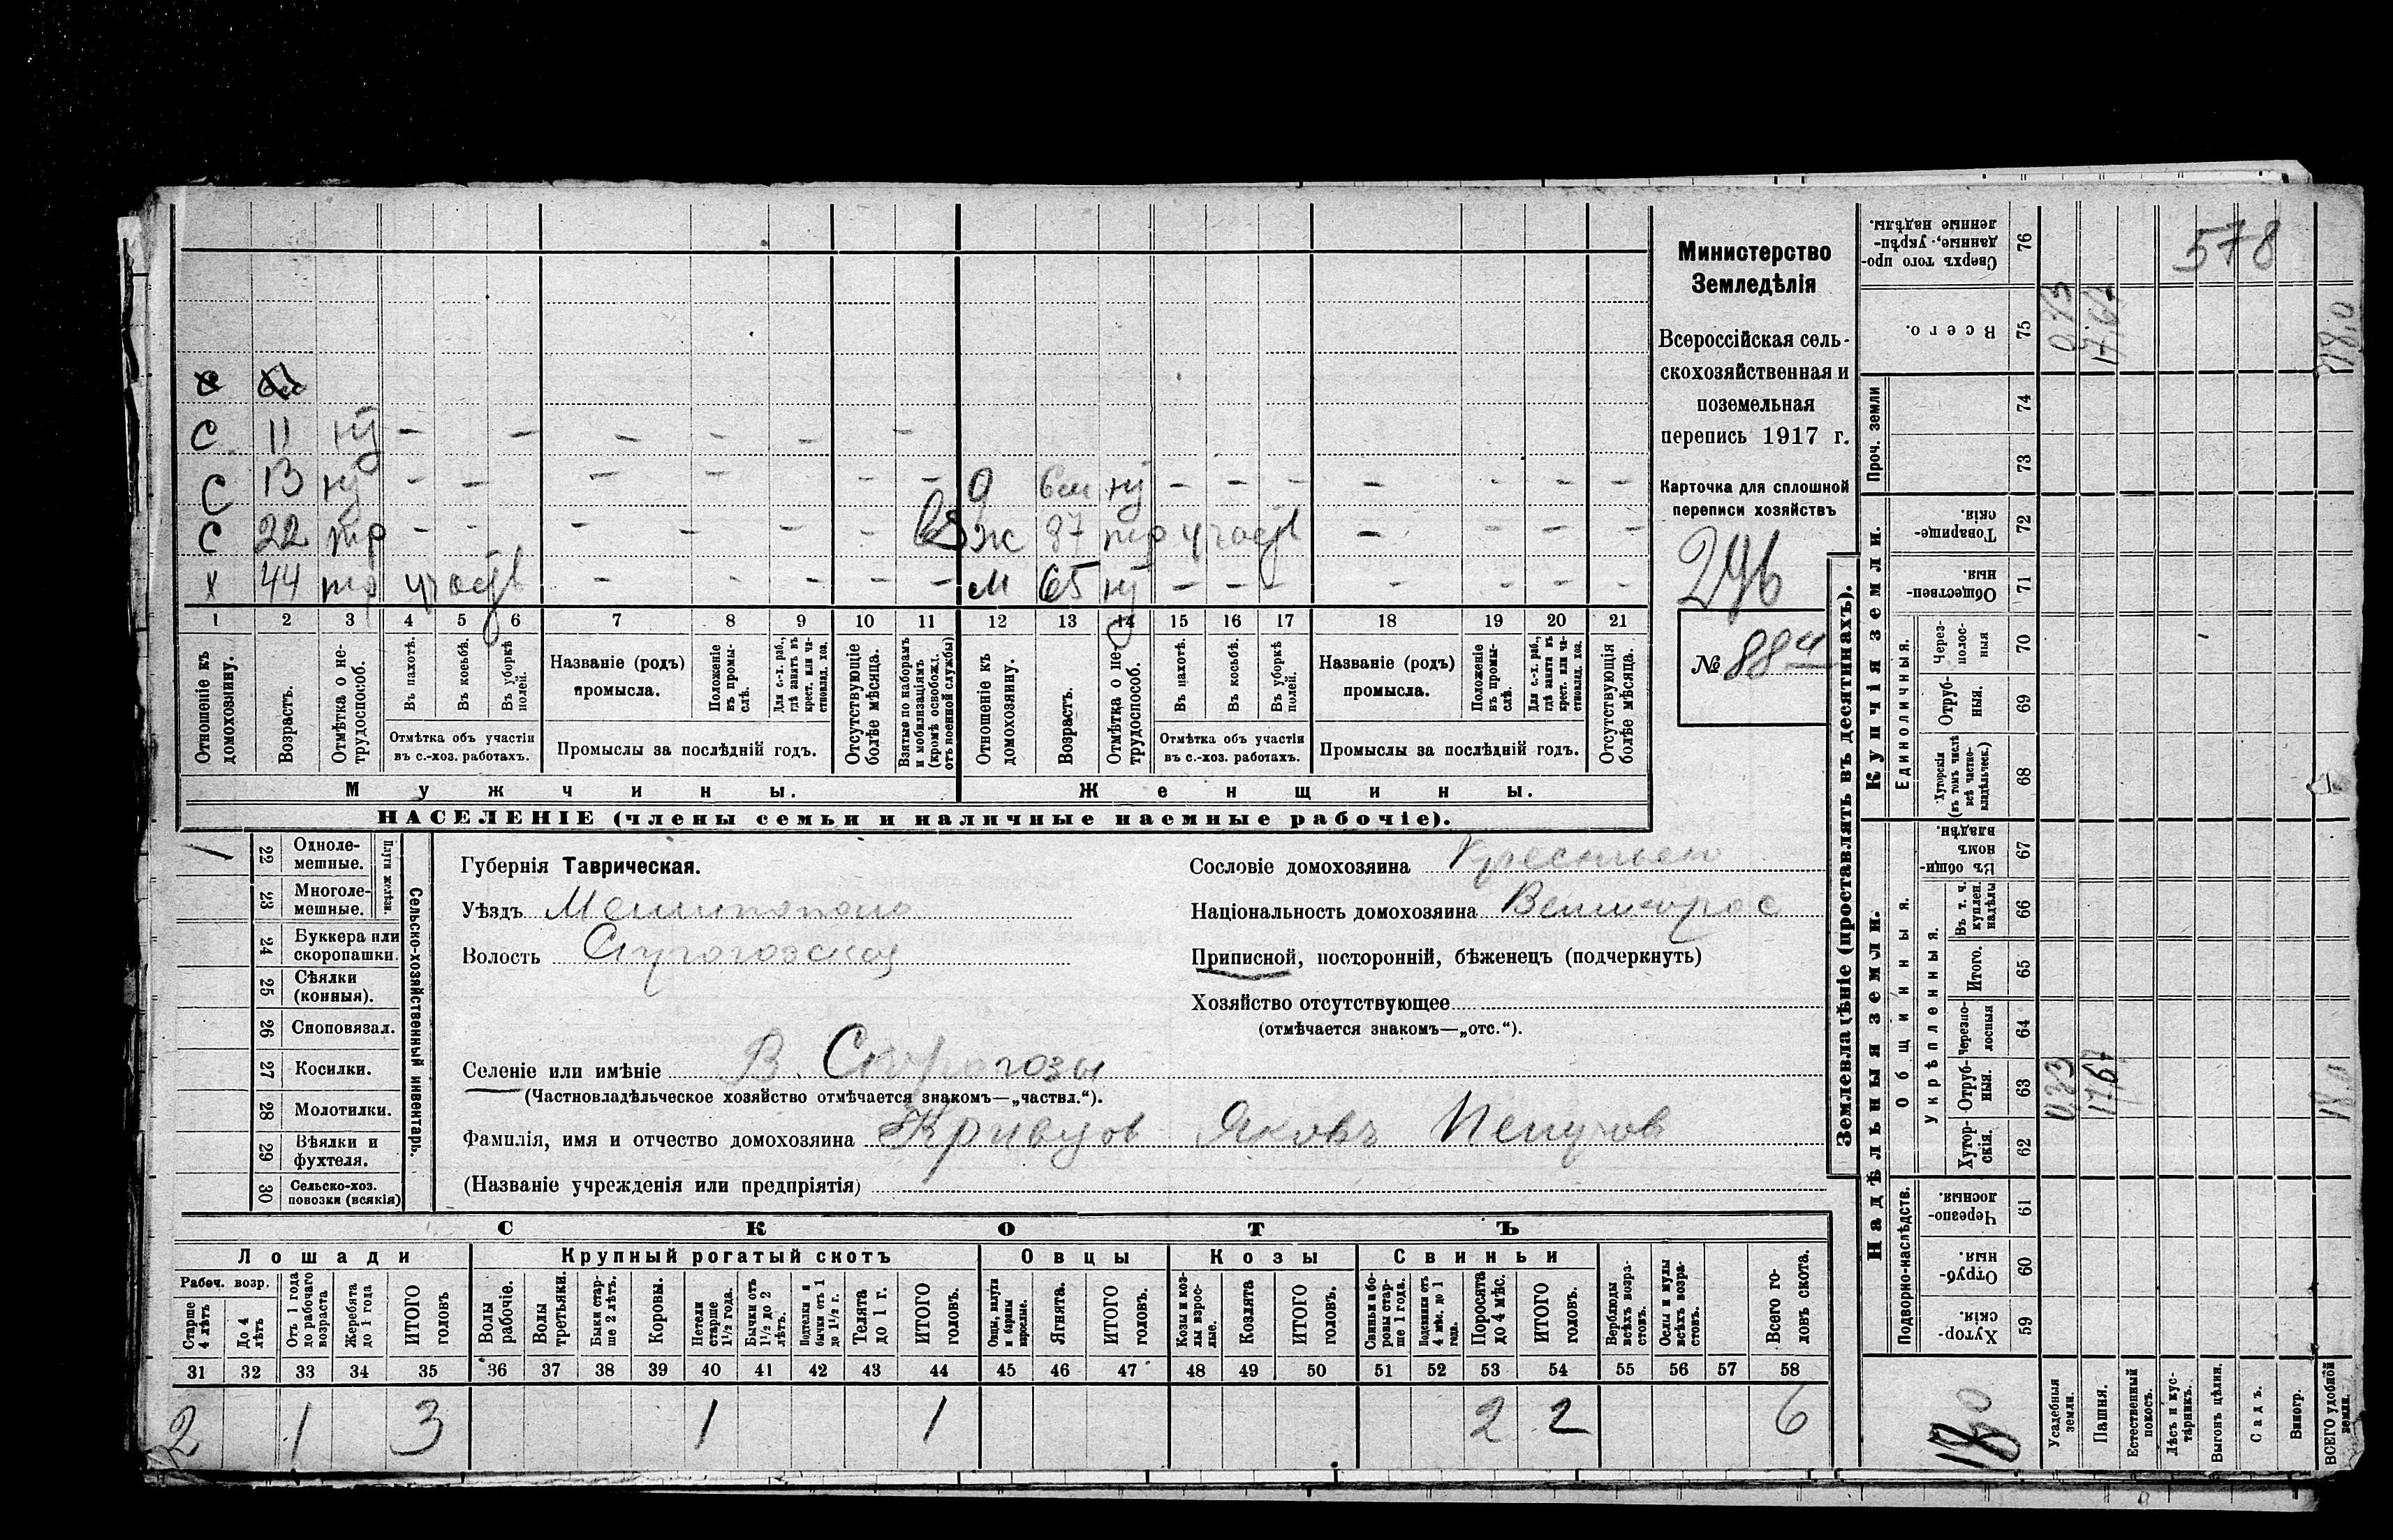 с
с 11 нт – – – – – –
с 13 нт – – – – – – д 6 м нт – – – – – – –
с 22 тр – – – – – – ж 37 тр участв – – – –
х 44 тр участв – – – – – м 65 нт – – – – – – –
1 2 3 4 5 6 7 8 9 10 11 12 13 14 15 16 17 18 19 20 21
Отношеніе къ домохозяину.
Возрастъ.
Отмѣтка о не-трудоспособ.
Въ пахотѣ.
Въ косьбѣ.
Въ уборкѣ полей.
Отмѣтка объ участіи
въ с.-хоз. работахъ.
Названіе (родъ)
промысла.
Положеніе въ промы-слѣ.
Для с.-х. раб., гдѣ занятъ въ крест. или ча-стновлад. хоз.
Промыслы за послѣдній годъ.
Отсутствующіе болѣе мѣсяца.
Взятые по наборамъ и мобилизаціямъ (кромѣ освобожд. отъ военной службы)
Отношеніе къ домохозяину.
Возрастъ.
Отмѣтка о не-трудоспособ.
Въ пахотѣ.
Въ косьбѣ.
Въ уборкѣ полей.
Отмѣтка объ участіи
въ с.-хоз. работахъ.
Названіе (родъ)
промысла.
Положеніе въ промы-слѣ.
Для с.-х. раб., гдѣ занята въ крест. или ча-стновлад. хоз.
Промыслы за послѣдній годъ.
Отсутствующія болѣе мѣсяца.
Мужчины. Женщины.
НАСЕЛЕНІЕ (члены семьи и наличные наемные рабочіе).
Министерство
Земледѣлія
Всероссійская сель-
скохозяйственная и
поземельная
перепись 1917 г.
Карточка для сплошной
переписи хозяйствъ
296
№ 88
1 22 Одноле-мешные.
23 Многоле-мешные.
Плуги желѣзн.
24 Буккера или скоропашки.
25 Сѣялки (конныя).
26 Сноповязал.
27 Косилки.
28 Молотилки.
29 Вѣялки и фухтеля.
30 Сельско-хоз. повозки (всякія)
Сельско-хозяйственный инвентарь.
Губернія Таврическая.
Уѣздъ Мелитополь
Волость
Селеніе или имѣніе В. Серогозы
(Частновладѣльческое хозяйство отмѣчается знакомъ—„частвл.“).
Фамилія, имя и отчество домохозяина Кривцов Яковъ
(Названіе учрежденія или предпріятія)
Сословіе домохозяина Крестьян
Національность домохозяина Великорос
Приписной, посторонній, бѣженецъ (подчеркнуть)
Хозяйство отсутствующее
(отмѣчается знакомъ—„отс.“).
СКОТЪ
Лошади Крупный рогатый скотъ Овцы Козы Свиньи
Рабоч. возр.
Старше 4 лѣтъ
До 4 лѣтъ
Отъ 1 года до рабочаго возраста
Жеребята до 1 года
ИТОГО головъ
Волы рабочіе.
Волы третьяки.
Быки стар-ше 2 лѣтъ.
Коровы.
Нетели старше 1½ года.
Бычки отъ 1½ до 2 лѣтъ.
Подтелки и бычки отъ 1 до 1½ г.
Телята до 1 г.
ИТОГО головъ.
Овцы, валухи и бараны взрослые.
Ягнята.
ИТОГО головъ.
Козы и коз-лы взрос-лые.
Козлята
ИТОГО головъ.
Свиньи и бо-ровы стар-ше 1 года.
Подсвинки отъ 4 мѣс. до 1 года.
Поросята до 4 мѣс.
ИТОГО головъ.
Верблюды всѣхъ возра-стовъ.
Ослы и мулы всѣхъ возра-стовъ.
Всего го-ловъ скота.
31 32 33 34 35 36 37 38 39 40 41 42 43 44 45 46 47 48 49 50 51 52 53 54 55 56 57 58
2 1 3 1 1 2 2 6
578
Землевладѣніе (проставлять въ десятинахъ).
Надѣльныя земли. Купчія земли. Проч. земли
Подворно-наслѣдств.
Общинныя.
Укрѣпленныя.
Единоличныя.
Хутор-скія. 59
Отруб-ныя. 60
Черезпо-лосныя. 61
Хутор-скія. 62
Отруб-ныя. 63
Черезпо-лосныя 64
Итого. 65
Въ т. ч. куплен. надѣлы 66
Въ общин-номъ владѣн. 67
Хуторскія (въ томъ числѣ всѣ частно-владѣльческ.) 68
Отруб-ныя. 69
Через-полос-ныя 70
Обществен-ныя. 71
Товарище-скія. 72
73
74
Всего. 75
Сверхъ того про-данные, укрѣп-ленные надѣлы. 76
Усадебныя земли. 0.33
Пашня. 17.67 17.67
Естественный покосъ.
Лѣсъ и кус-тарникъ.
Выгонъ цѣлин.
Садъ.
Виногр.
ВСЕГО удобной земли. 18.0 18.0